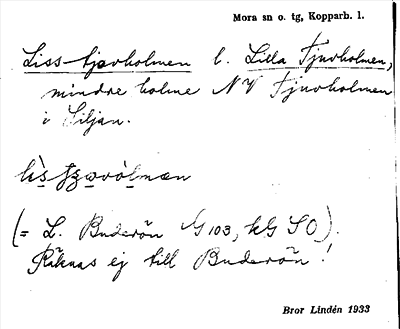 Mora sn o. tg, Kopparb. l.
Liss-tjuvholmen l. Lilla Tjuvholmen,
mindre holme NV Tjuvholmen
i Siljan.
(= L. Buderön G 103, kG SO).
Räknas ej till Buderön!
Bror Lindén 1933